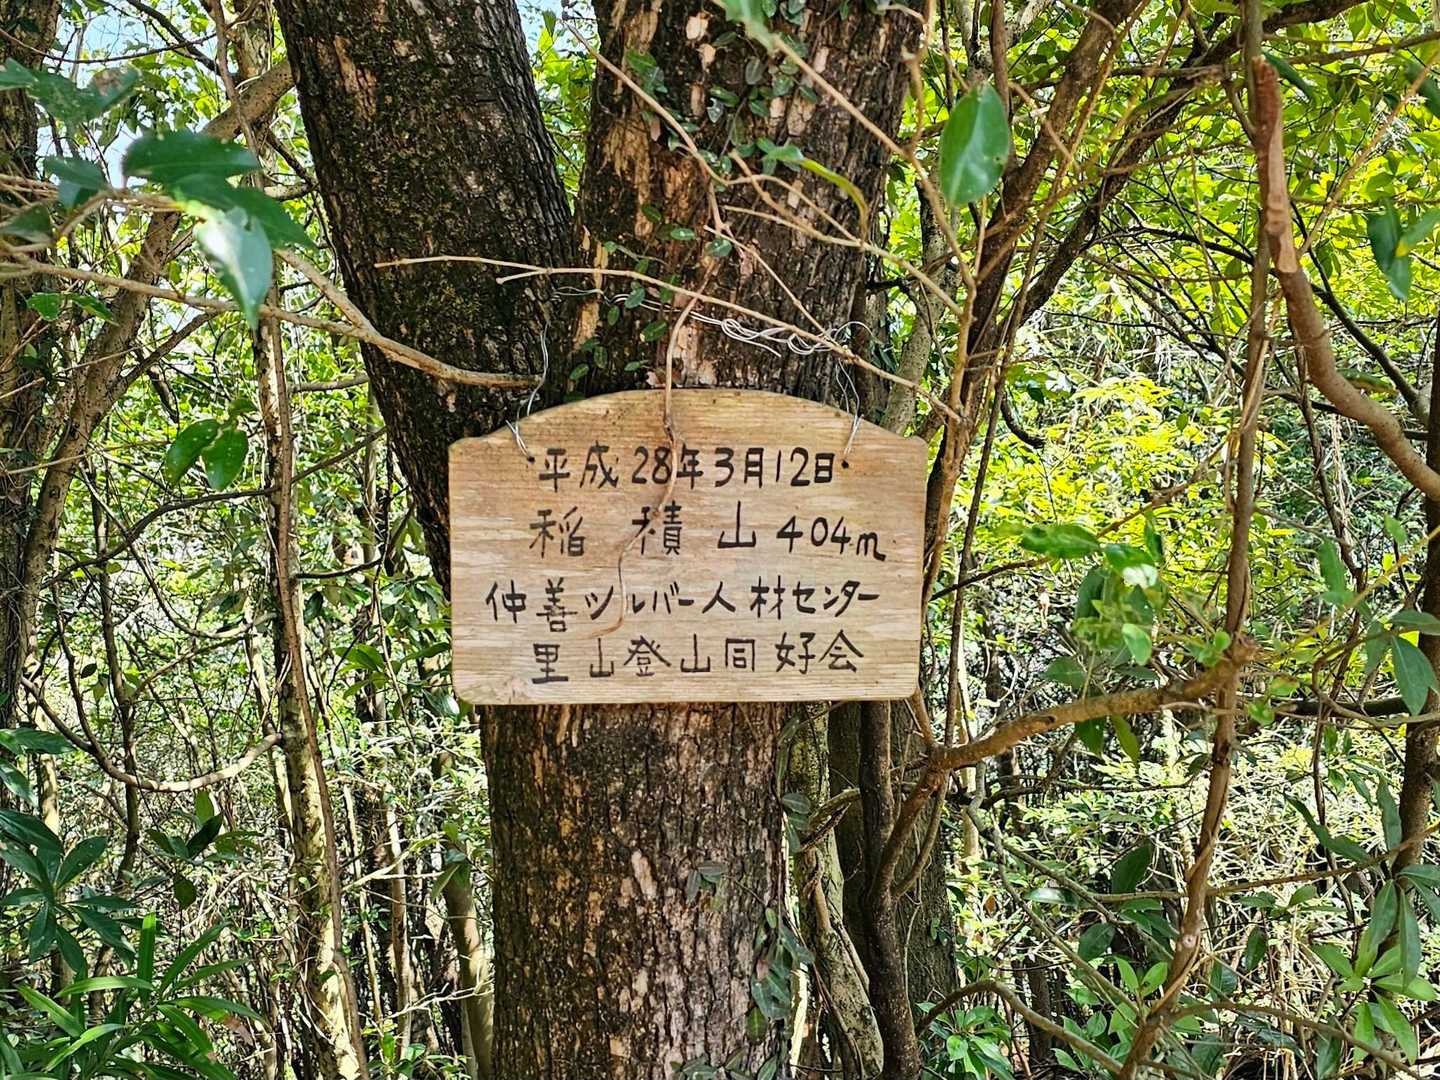 平成28年3月12日
稲積山 404m
仲善シルバー人材センター
里山登山同好会